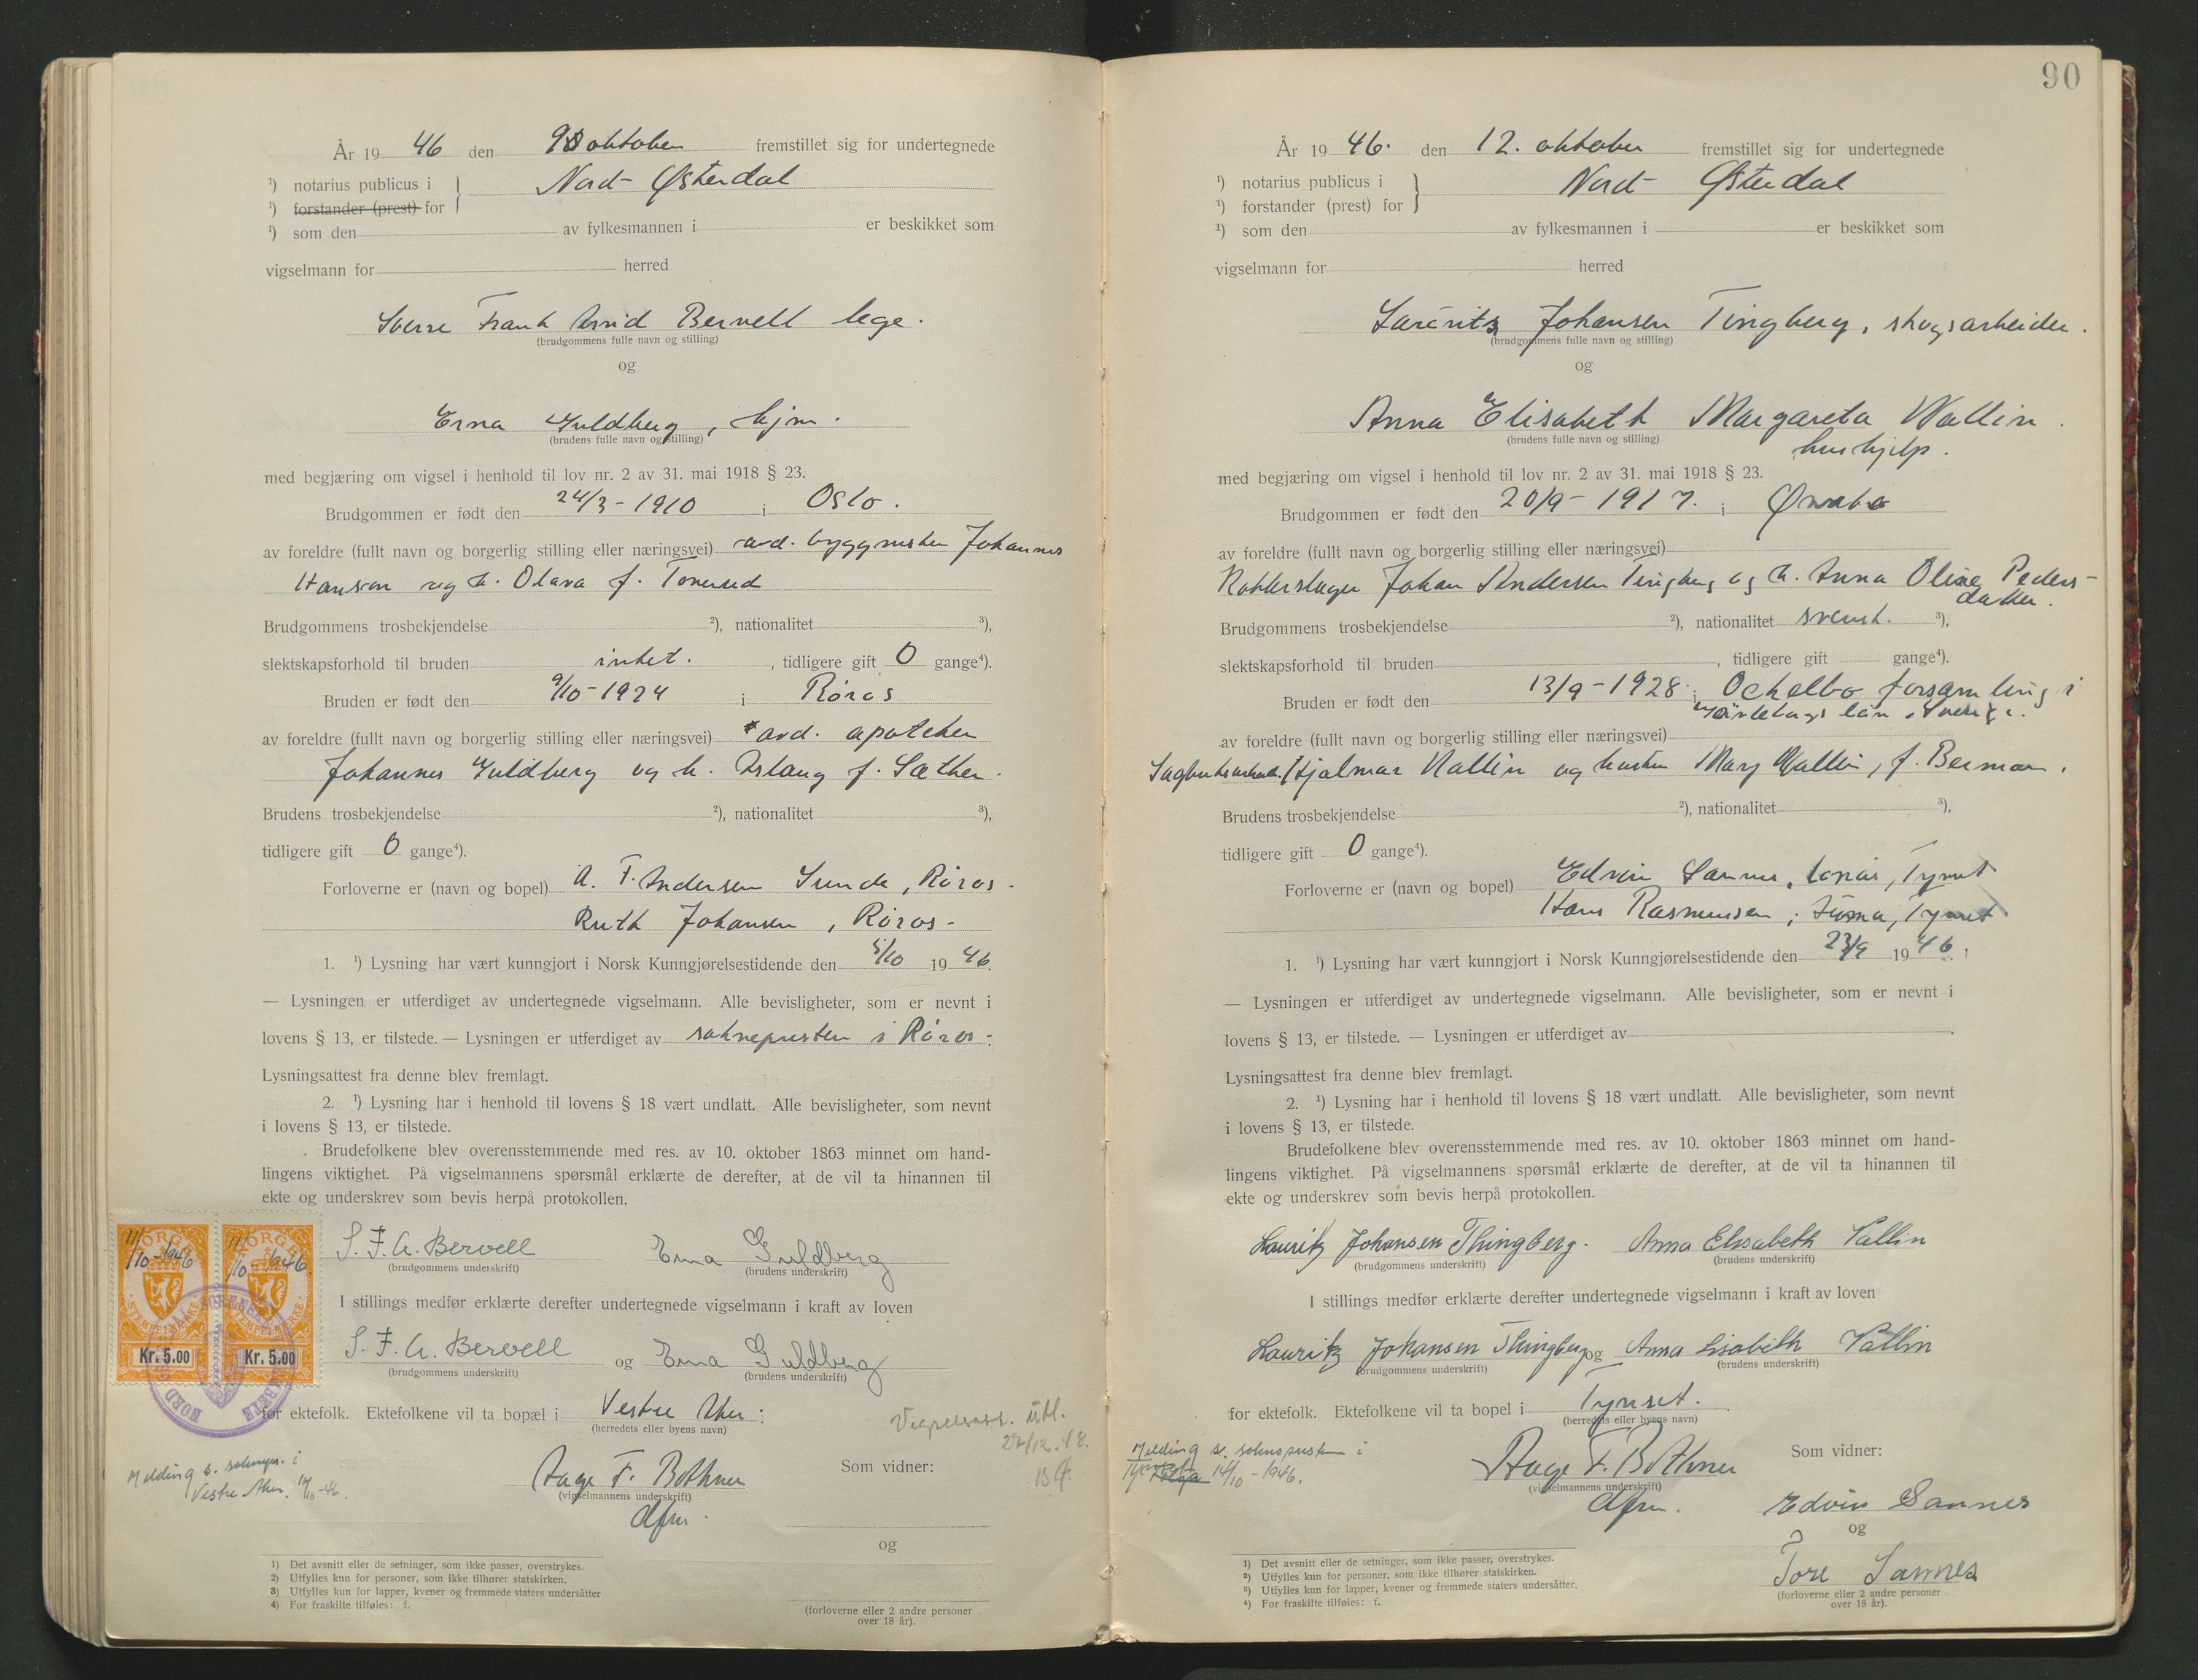 År 19 46 den 9 oktober fremstillet sig for undertegnede
¹) notarius publicus i
¹) forstander (prest) for
Nord-Østerdal
¹) som den av fylkesmannen i er beskikket som
vigselmann for herred
Sverre Frank Arvid Bervell lege.
(brudgommens fulle navn og stilling)
og
Erna Guldberg, hjm.
(brudens fulle navn og stilling)
med begjæring om vigsel i henhold til lov nr. 2 av 31. mai 1918 § 23.
Brudgommen er født den 24/3-1910 i Oslo.
av foreldre (fullt navn og borgerlig stilling eller næringsvei) avd. byggmester Johannes
Hanson og h. Olava f. Tonerud
Brudgommens trosbekjendelse ²), nationalitet ³),
slektskapsforhold til bruden intet. , tidligere gift 0 gange⁴).
Bruden er født den 9/10-1924 i Røros
av foreldre (fullt navn og borgerlig stilling eller næringsvei) avd. apoteker
Johannes Guldberg og h. Aslaug f. Sæther.
Brudens trosbekjendelse ²), nationalitet ³),
tidligere gift 0 gange⁴).
Forloverne er (navn og bopel) A. F. Andersen Sunde, Røros.
Ruth Johansen, Røros.
1. ¹) Lysning har vært kunngjort i Norsk Kunngjørelsestidende den 5/10 19 46.
— Lysningen er utferdiget av undertegnede vigselmann. Alle bevisligheter, som er nevnt i
lovens § 13, er tilstede. — Lysningen er utferdiget av soknepresten i Røros.
Lysningsattest fra denne blev fremlagt.
2. ¹) Lysning har i henhold til lovens § 18 vært undlatt. Alle bevisligheter, som nevnt
i lovens § 13, er tilstede.
Brudefolkene blev overensstemmende med res. av 10. oktober 1863 minnet om hand-
lingens viktighet. På vigselmannens spørsmål erklærte de derefter, at de vil ta hinannen til
ekte og underskrev som bevis herpå protokollen.
S. F. A. Bervell Erna Guldberg
(brudgommens underskrift) (brudens underskrift)
I stillings medfør erklærte derefter undertegnede vigselmann i kraft av loven
S. F. A. Bervell og Erna Guldberg
(brudgommens underskrift) (brudens underskrift)
for ektefolk. Ektefolkene vil ta bopæl i Vestre Aker.
(herredets eller byens navn)
Vigselsatt. utl.
27/12.48.
Aage F. Bothner
(vigselmannens underskrift)
dfm.
Som vidner:
og
(forloverne eller 2 andre personer
over 18 år).
Melding s. soknepr. i
Vestre Aker. 14/10-46.
NORGE
11/10-1946
STEMPELMERKE
Kr. 5.00
NORGE
11/10-1946
STEMPELMERKE
Kr. 5.00
1) Det avsnitt eller de setninger, som ikke passer, overstrykes.
2) Utfylles kun for personer, som ikke tilhører statskirken.
3) Utfylles kun for lapper, kvener og fremmede staters undersåtter
4) For fraskilte tilføies: f.
90
År 19 46. den 12. oktober fremstillet sig for undertegnede
¹) notarius publicus i
¹) forstander (prest) for
Nord-Østerdal
¹) som den av fylkesmannen i er beskikket som
vigselmann for herred
Lauritz Johansen Tingberg, skogsarbeider.
(brudgommens fulle navn og stilling)
og
Anna Elisabeth Margareta Wallin.
(brudens fulle navn og stilling)
hushjelp.
med begjæring om vigsel i henhold til lov nr. 2 av 31. mai 1918 § 23.
Brudgommen er født den 20/9-1917. i
av foreldre (fullt navn og borgerlig stilling eller næringsvei)
Kobberslager Johan Andersen Tingberg og h. Anna Oline Peders-
datter.
Brudgommens trosbekjendelse ²), nationalitet svensk. ³),
slektskapsforhold til bruden , tidligere gift gange⁴).
Bruden er født den 13/9-1928. i Ockelbo forsamling i
Gävleborgs län, Sverige.
av foreldre (fullt navn og borgerlig stilling eller næringsvei)
Sagbruksarbeid. Hjalmar Wallin og hustru Mary Wallin, f. Berman.
Brudens trosbekjendelse ²), nationalitet ³),
tidligere gift 0 gange⁴).
Forloverne er (navn og bopel) Edvin Sannes, Tynset
Hans Rasmussen, Tynset
1. ¹) Lysning har vært kunngjort i Norsk Kunngjørelsestidende den 23/9 19 46.
— Lysningen er utferdiget av undertegnede vigselmann. Alle bevisligheter, som er nevnt i
lovens § 13, er tilstede. — Lysningen er utferdiget av .
Lysningsattest fra denne blev fremlagt.
2. ¹) Lysning har i henhold til lovens § 18 vært undlatt. Alle bevisligheter, som nevnt
i lovens § 13, er tilstede.
Brudefolkene blev overensstemmende med res. av 10. oktober 1863 minnet om hand-
lingens viktighet. På vigselmannens spørsmål erklærte de derefter, at de vil ta hinannen til
ekte og underskrev som bevis herpå protokollen.
Lauritz Johansen Thingberg. Anna Elisabeth Vallin
(brudgommens underskrift) (brudens underskrift)
I stillings medfør erklærte derefter undertegnede vigselmann i kraft av loven
Lauritz Johansen Thingberg og Anna Lisabeth Vallin
(brudgommens underskrift) (brudens underskrift)
for ektefolk. Ektefolkene vil ta bopel i Tynset.
(herredets eller byens navn)
Melding s. soknepresten i
Tynset 14/10-1946.
Aage F. Bothner
(vigselmannens underskrift)
dfm.
Som vidner:
Edvin Sannes
og
Tore Sannes
(forloverne eller 2 andre personer
over 18 år).
1) Det avsnitt eller de setninger, som ikke passer, overstrykes.
²) Utfylles kun for personer, som ikke tilhører statskirken.
³) Utfylles kun for lapper, kvener og fremmede staters undersåtter.
⁴) For fraskilte tilføies: f.